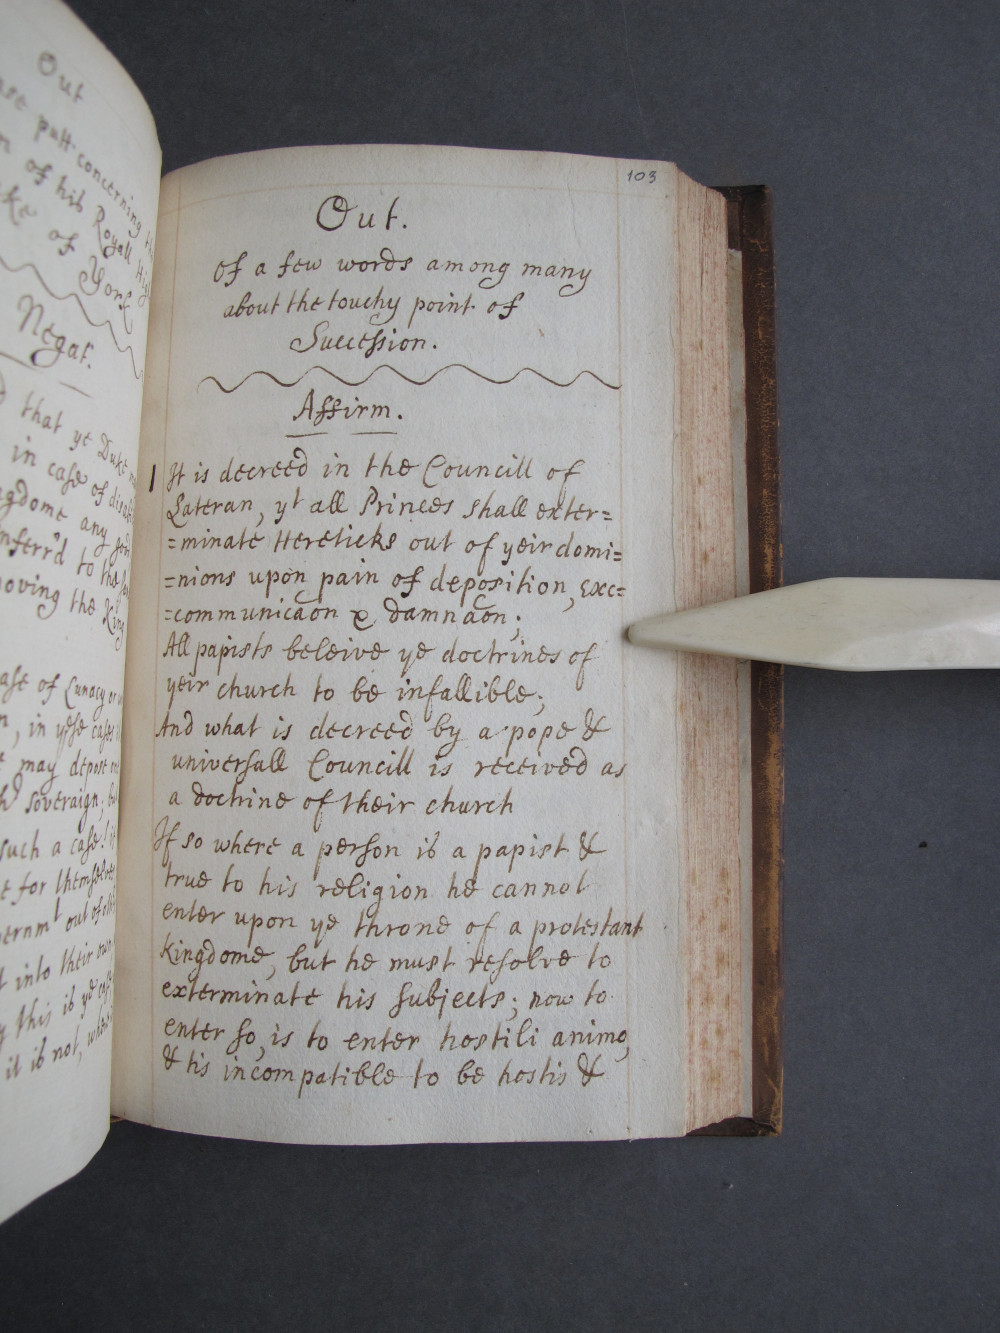 Out
putt concerning
of his Royall High
of York
Negat.
that ye Duke
in case of
any
inferr'd to the
moving the King
case of Lunacy or
in yese cases
may depose
soveraign;
such a case!
for themselves
out of
into their own
this is ye case
it is not,
103
Out.
of a few words among many
about the touchy point of
Succession.
Affirm.
1 It is decreed in the Councill of
Lateran, yt all Princes shall exter=
=minate Hereticks out of yeir domi=
=nions upon pain of deposition, exc=
=communicaon & damnaon;
All papists beleive ye doctrines of
yeir church to be infallible;
And what is decreed by a pope &
universall Councill is received as
a doctrine of their church
If so where a person is a papist &
true to his religion he cannot
enter upon ye throne of a protestant
kingdome, but he must resolve to
exterminate his subjects; now to
enter so, is to enter hostili animo,
& tis incompatible to be hostis &